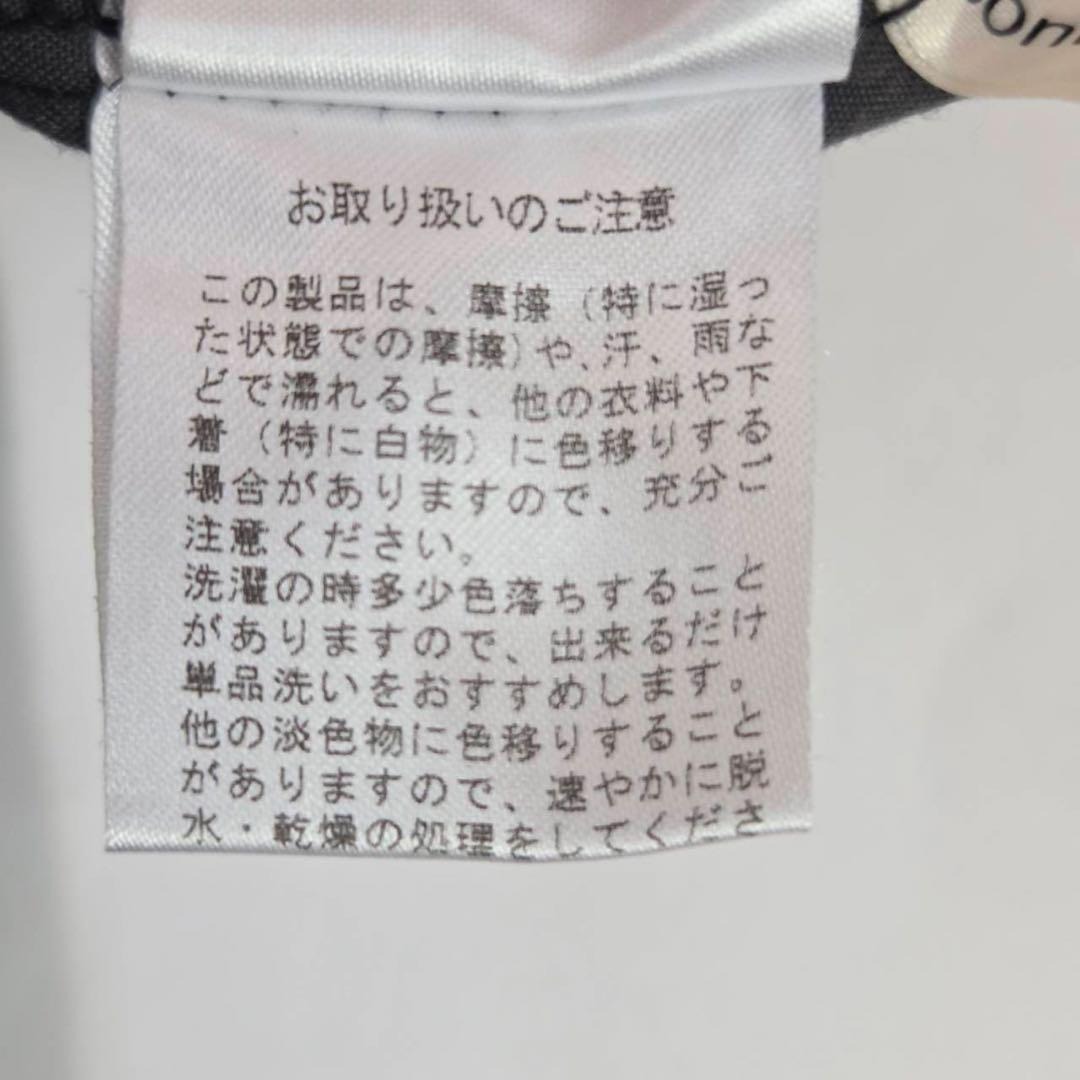 お取り扱いのご注意
この製品は、摩擦(特に湿っ
た状態での摩擦)や、汗、雨な
どで濡れると、他の衣料や下
着(特に白物)に色移りする
場合がありますので、充分ご
注意ください。
洗濯の時多少色落ちすること
がありますので、出来るだけ
単品洗いをおすすめします。
他の淡色物に色移りすること
がありますので、速やかに脱
水・乾燥の処理をしてくださ